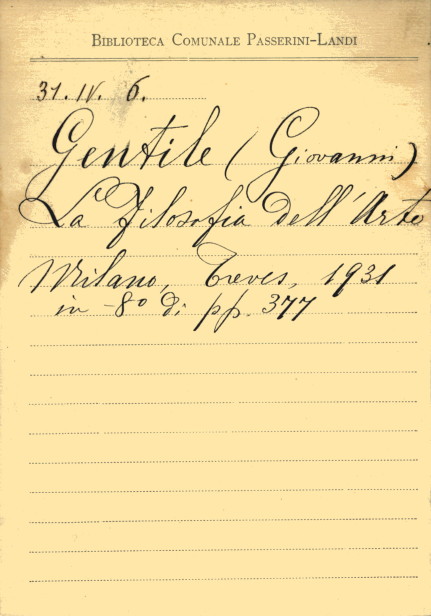 BIBLIOTECA COMUNALE PASSERINI-LANDI
31. IV. 6.
Gentile (Giovanni)
La Filosofia dell'Arte
Milano, Treves, 1931
in -8º di pp. 377